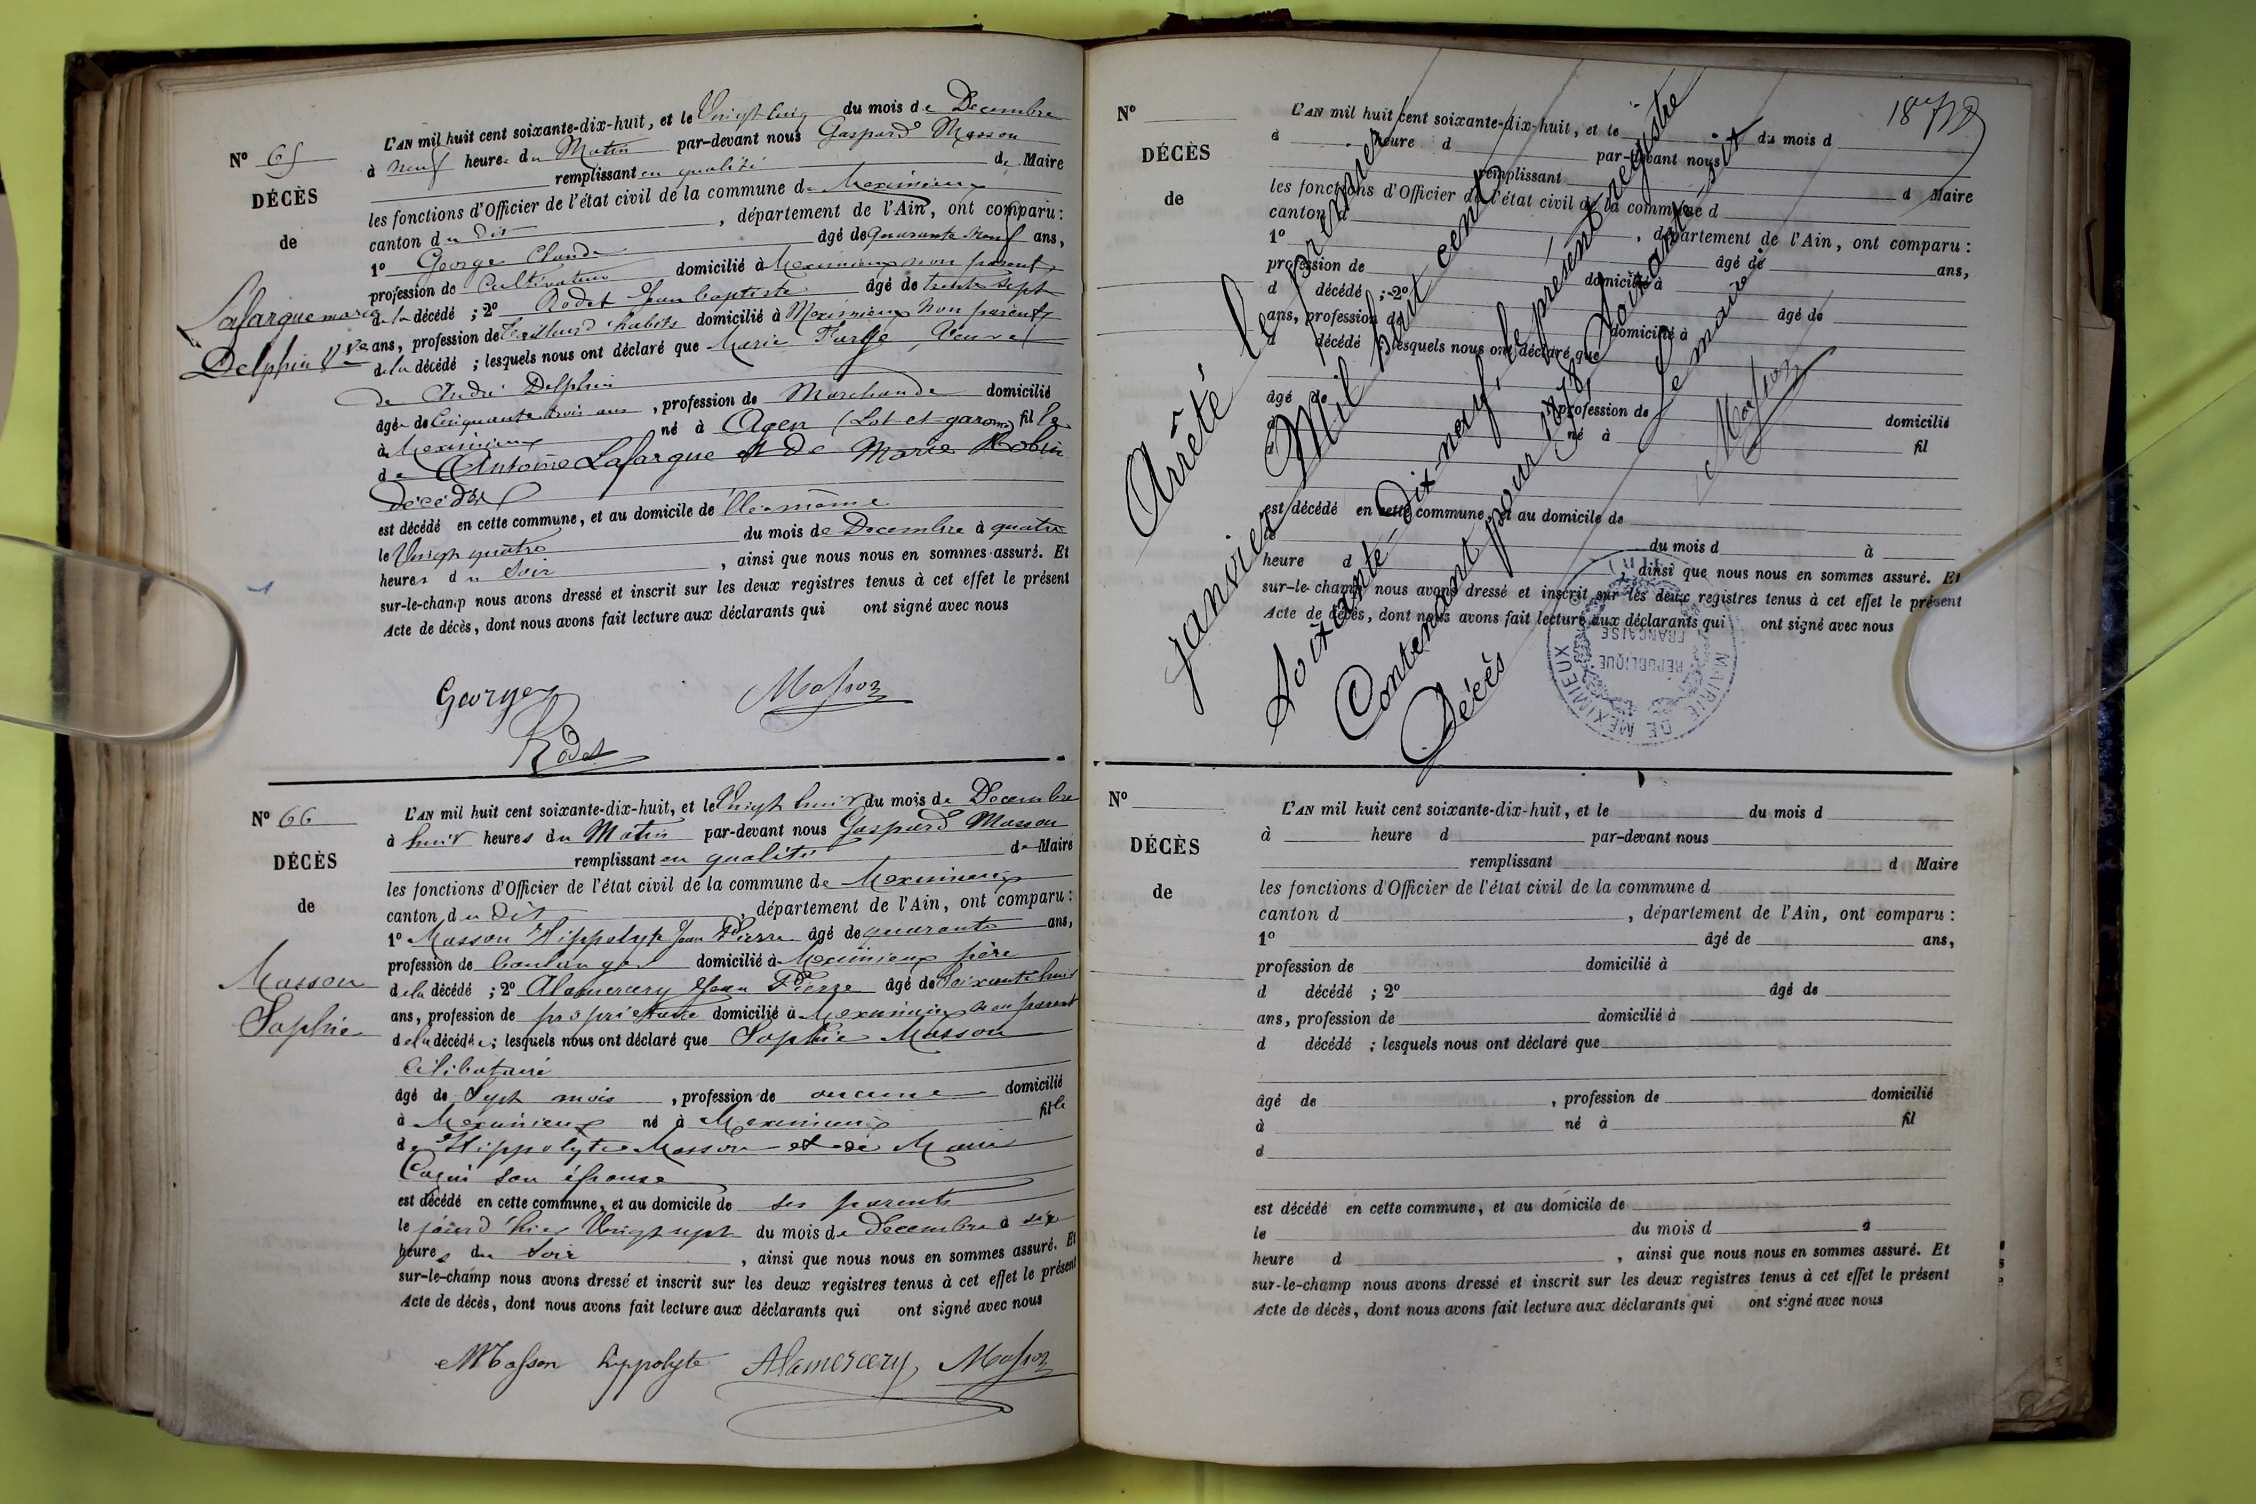 N° 65
DÉCÈS
de
Lafargue marie
Delphin Vve
L'AN mil huit cent soixante-dix-huit, et le Vingt cinq du mois de Decembre
à neuf heures du Matin par-devant nous Gaspard Masson
remplissant en qualité de Maire
les fonctions d'Officier de l'état civil de la commune de Meximieux
canton du dit , département de l'Ain, ont comparu :
1° George Claude âgé de quarante neuf ans,
profession de Cultivateur domicilié à Meximieux non parent
de la décédé ; 2° Rodet Jean baptiste âgé de trente sept
ans, profession de Tailleur d'habits domicilié à Meximieux Non parent
de la décédé ; lesquels nous ont déclaré que Marie Veuve
de André Delphin
âgée de Cinquante trois ans , profession de Marchande domicilié
à Meximieux né à Agen (Lot et garonne) fille
de Antoine Lafargue et de Marie Robin
décédés
est décédé en cette commune, et au domicile de Elle-même
le Vingt quatre du mois de Decembre à quatre
heures du Soir , ainsi que nous nous en sommes assuré. Et
sur-le-champ nous avons dressé et inscrit sur les deux registres tenus à cet effet le présent
Acte de décès, dont nous avons fait lecture aux déclarants qui ont signé avec nous
George Masson
Rodet
N° 66
DÉCÈS
de
Masson
Sophie
L'AN mil huit cent soixante-dix-huit, et le Vingt huit du mois de Decembre
à huit heures du Matin par-devant nous Gaspard Masson
remplissant en qualité de Maire
les fonctions d'Officier de l'état civil de la commune de Meximieux
canton du dit , département de l'Ain, ont comparu :
1° Masson Hippolyte Jean Pierre âgé de quarante ans,
profession de boulanger domicilié à Meximieux père
de la décédé ; 2° Alamercery Jean Pierre âgé de Soixante huit
ans, profession de propriétaire domicilié à Meximieux non parent
de la décédée ; lesquels nous ont déclaré que Sophie Masson
Célibataire
âgé de Sept mois , profession de aucune domicilié
à Meximieux né à Meximieux fille
de Hippolyte Masson et de Marie
son épouse
est décédé en cette commune, et au domicile de ses parents
le jourd'hier Vingt sept du mois de Decembre à six
heures du Soir , ainsi que nous nous en sommes assuré. Et
sur-le-champ nous avons dressé et inscrit sur les deux registres tenus à cet effet le présent
Acte de décès, dont nous avons fait lecture aux déclarants qui ont signé avec nous
Masson hippolyte Alamercery Masson
N°
DÉCÈS
de
L'AN mil huit cent soixante-dix-huit, et le du mois d
à heure d par-devant nous
remplissant d Maire
les fonctions d'Officier de l'état civil de la commune d
canton d , département de l'Ain, ont comparu :
1° âgé de ans,
profession de domicilié à
d décédé ; 2° âgé de
ans, profession de domicilié à
d décédé ; lesquels nous ont déclaré que
âgé de , profession de domicilié
à né à fil
d
est décédé en cette commune, et au domicile de
le du mois d à
heure d , ainsi que nous nous en sommes assuré. Et
sur-le-champ nous avons dressé et inscrit sur les deux registres tenus à cet effet le présent
Acte de décès, dont nous avons fait lecture aux déclarants qui ont signé avec nous
Arrêté le premier
janvier Mil huit cent
soixante-dix-neuf, le présent registre
Contenant pour 1878, Soixante-six
Décès
Le maire
Masson
MAIRIE DE MEXIMIEUX
RÉPUBLIQUE FRANÇAISE
N°
DÉCÈS
de
L'AN mil huit cent soixante-dix-huit, et le du mois d
à heure d par-devant nous
remplissant d Maire
les fonctions d'Officier de l'état civil de la commune d
canton d , département de l'Ain, ont comparu :
1° âgé de ans,
profession de domicilié à
d décédé ; 2° âgé de
ans, profession de domicilié à
d décédé ; lesquels nous ont déclaré que
âgé de , profession de domicilié
à né à fil
d
est décédé en cette commune, et au domicile de
le du mois d à
heure d , ainsi que nous nous en sommes assuré. Et
sur-le-champ nous avons dressé et inscrit sur les deux registres tenus à cet effet le présent
Acte de décès, dont nous avons fait lecture aux déclarants qui ont signé avec nous